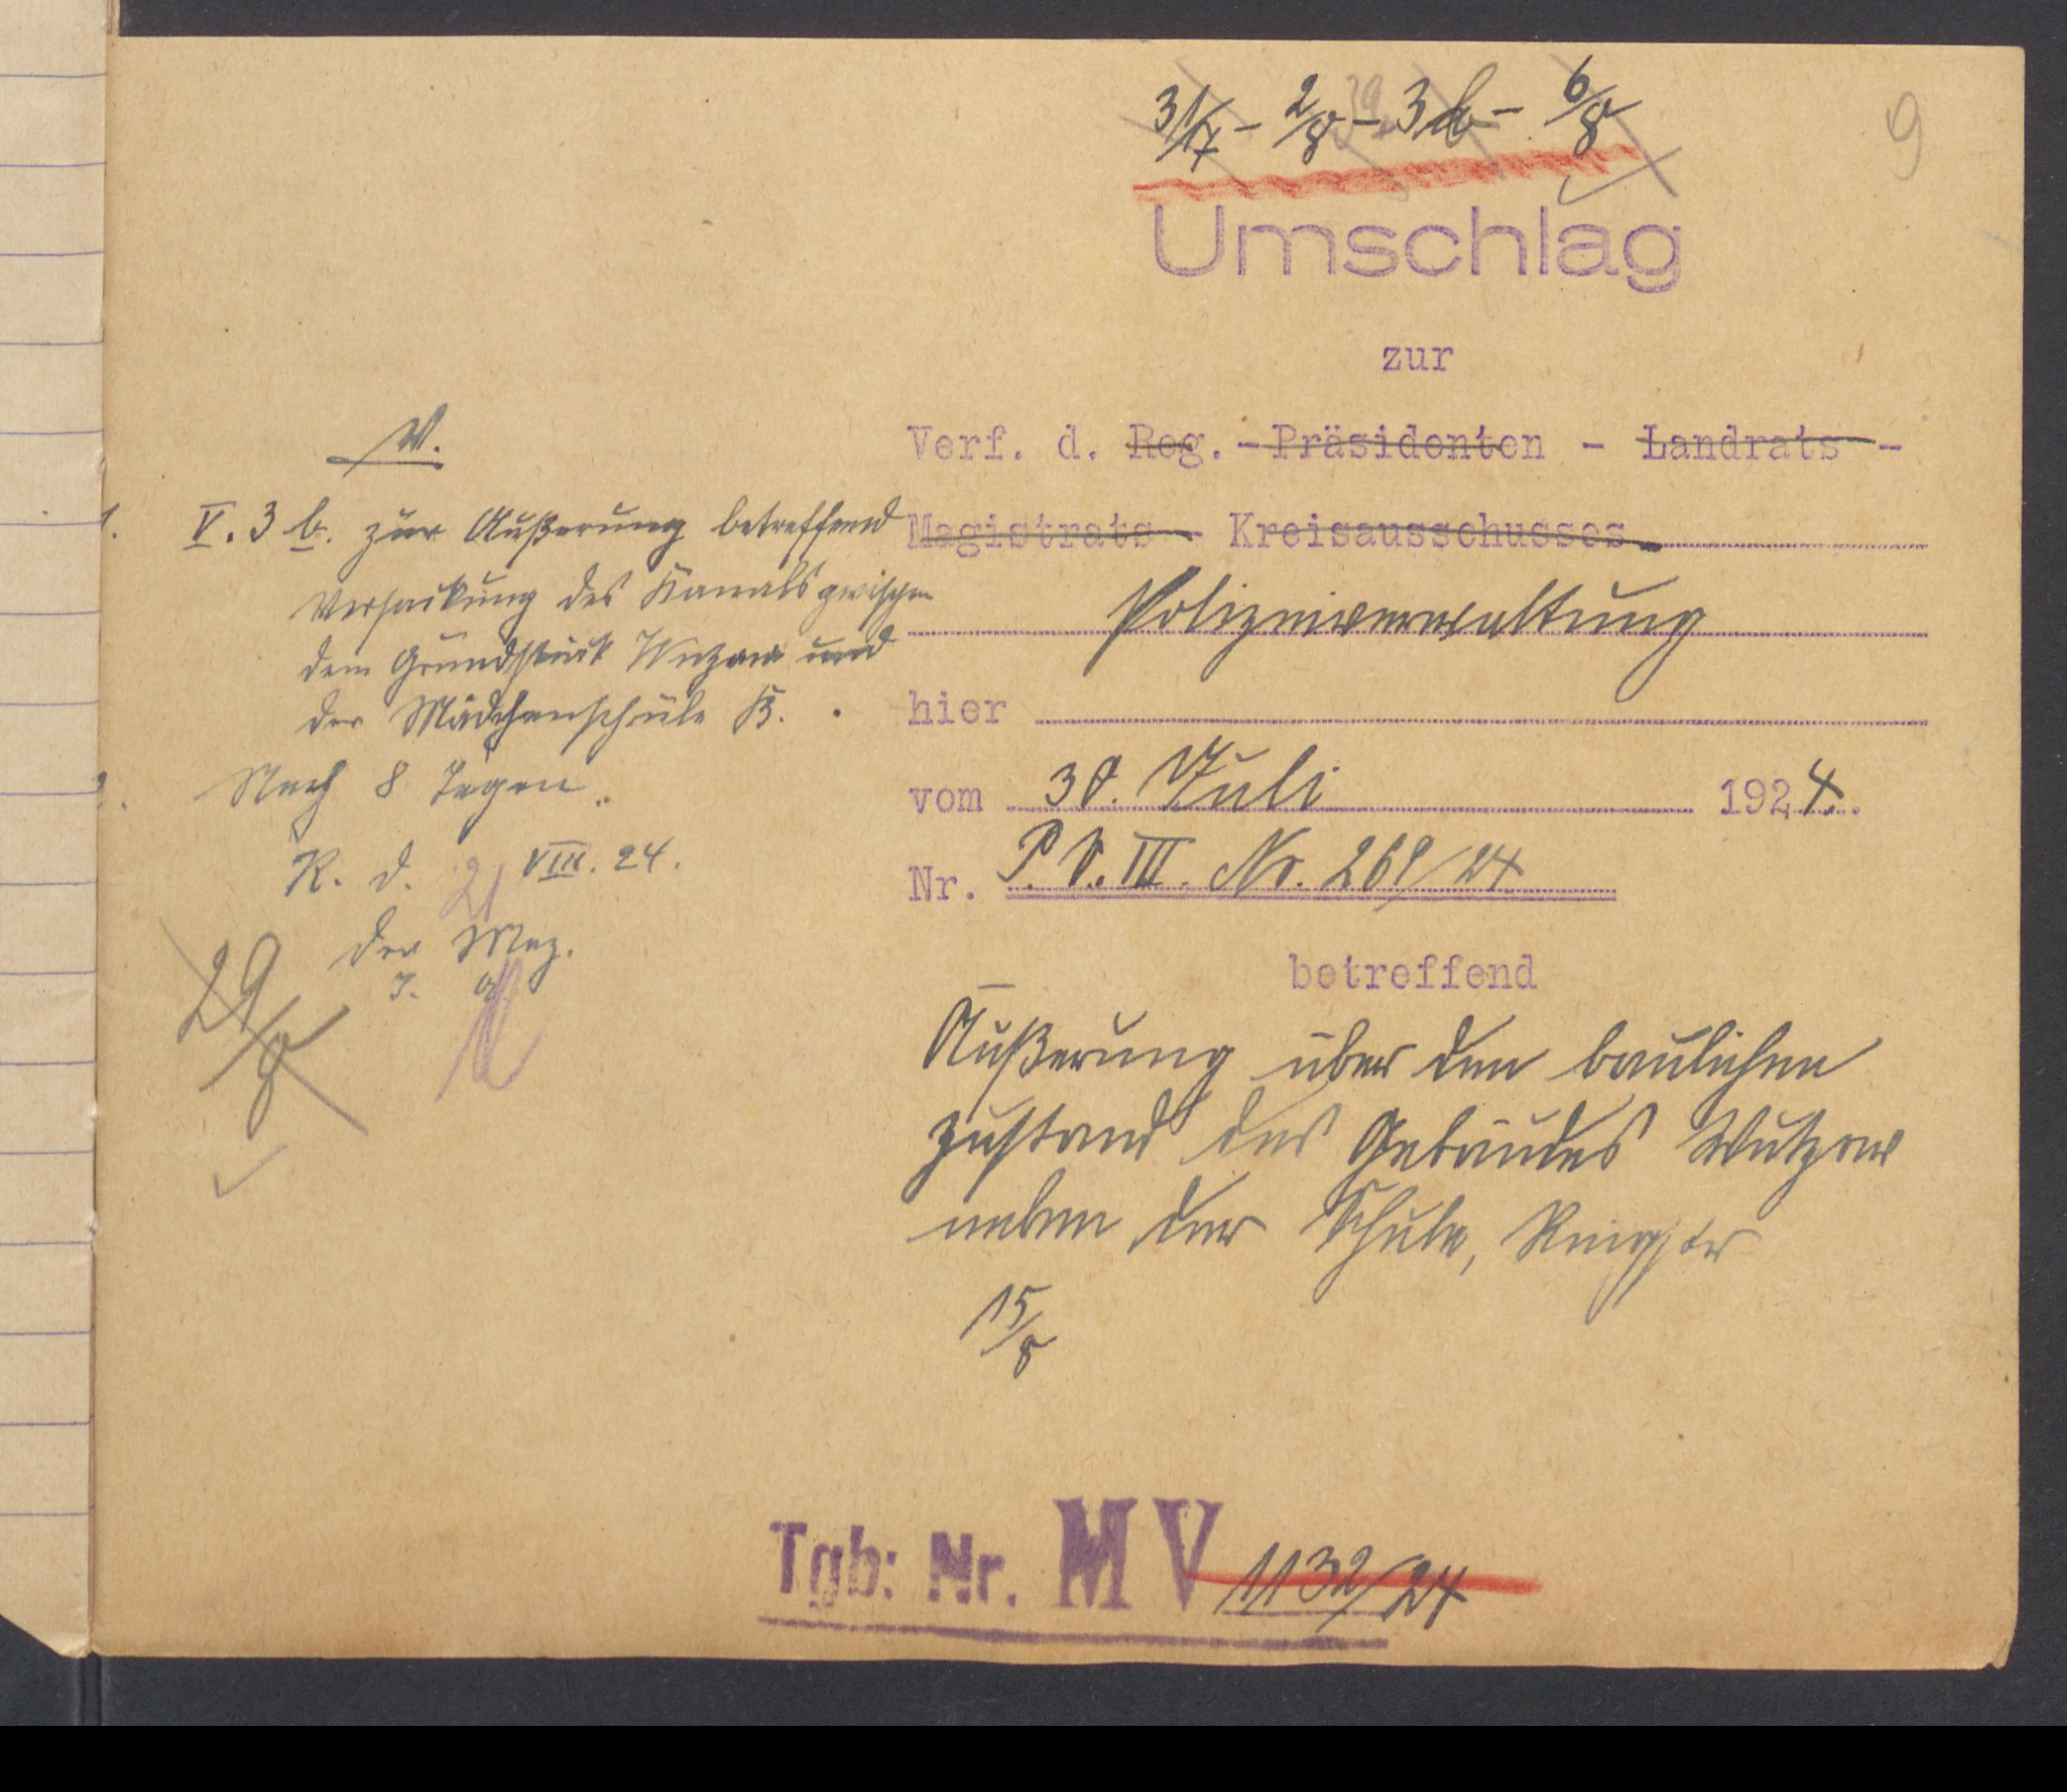 31/7 - 2/8 - 3b - 6/8
9
Umschlag
zur
Verf. d. Reg.-Präsidenten - Landrats -
Magistrats - Kreisausschusses
Polizeiverwaltung
hier
vom 30. Juli 1924.
Nr. P.V.III. Nr. 261/24
betreffend
Äußerung über den baulichen
Zustand des Gebäudes Wutzow
neben der Schule, Ringstr
15/8
V.
1. V.3b. zur Äußerung betreffend
Versackung des Kanals zwischen
dem Grundstück und
der Mädchenschule B.
2. Nach 8 Tagen.
R. d. 21 VIII. 24.
Der Mag.
J. A.
29/8
Tgb: Nr. M V 1132/24